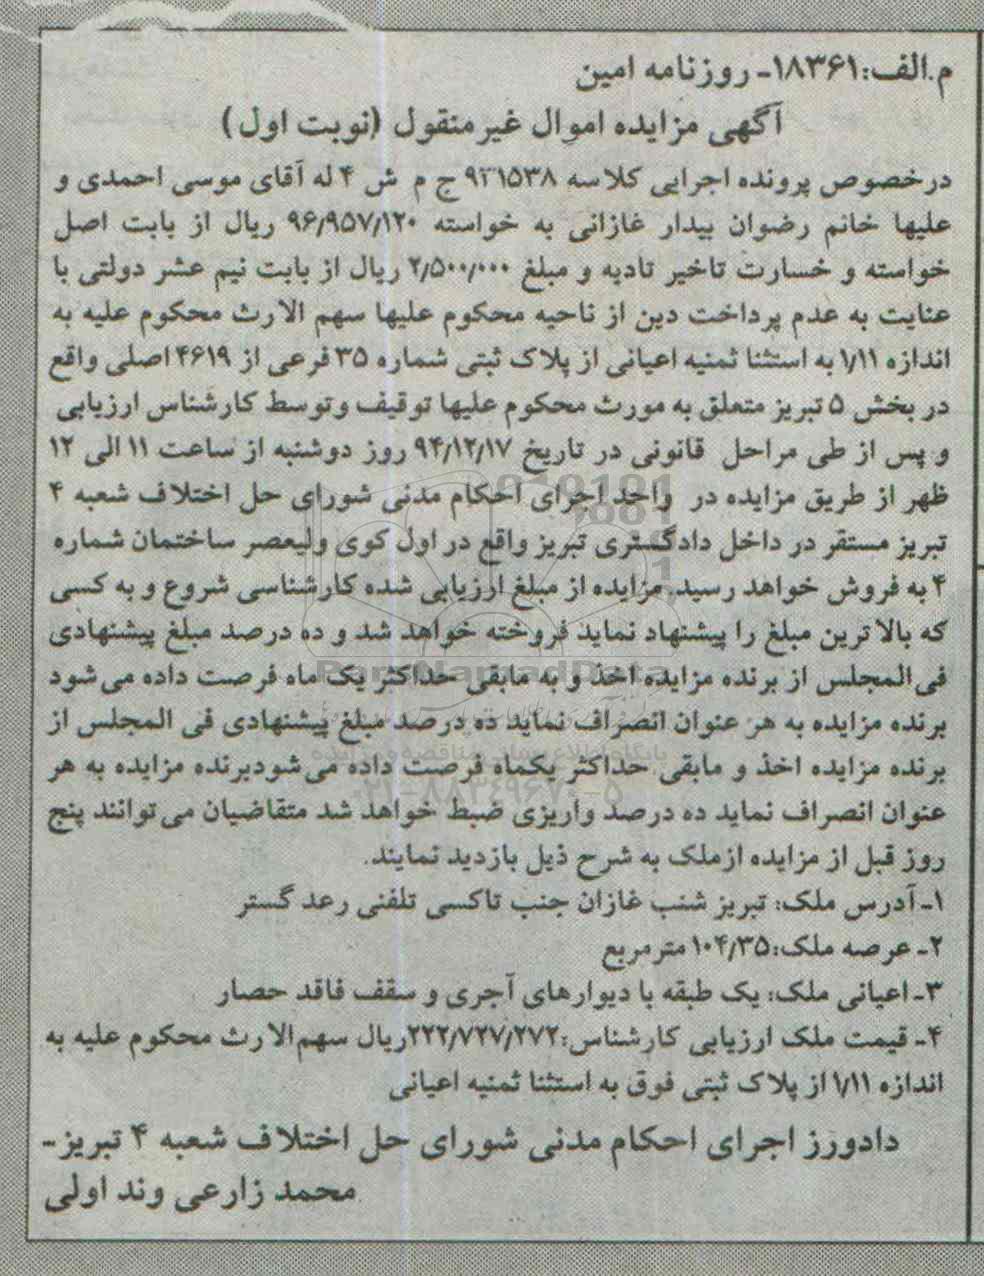 م.الف:۱۸۳۶۱- روزنامه امین
آگهی مزایده اموال غیرمنقول (نوبت اول)
درخصوص پرونده اجرایی کلاسه ۹۳۱۵۳۸ ج م ش ۴ له آقای موسی احمدی و
علیها خانم رضوان بیدار غازانی به خواسته ۹۶/۹۵۷/۱۲۰ ریال از بابت اصل
خواسته و خسارت تاخیر تادیه و مبلغ ۲/۵۰۰/۰۰۰ ریال از بابت نیم عشر دولتی با
عنایت به عدم پرداخت دین از ناحیه محکوم علیها سهم الارث محکوم علیه به
اندازه ۱/۱۱ به استثنا ثمنیه اعیانی از پلاک ثبتی شماره ۳۵ فرعی از ۴۶۱۹ اصلی واقع
در بخش ۵ تبریز متعلق به مورث محکوم علیها توقیف وتوسط کارشناس ارزیابی
و پس از طی مراحل قانونی در تاریخ ۹۴/۱۲/۱۷ روز دوشنبه از ساعت ۱۱ الی ۱۲
ظهر از طریق مزایده در واحد اجرای احکام مدنی شورای حل اختلاف شعبه ۴
تبریز مستقر در داخل دادگستری تبریز واقع در اول کوی ولیعصر ساختمان شماره
۴ به فروش خواهد رسید. مزایده از مبلغ ارزیابی شده کارشناسی شروع و به کسی
که بالاترین مبلغ را پیشنهاد نماید فروخته خواهد شد و ده درصد مبلغ پیشنهادی
فی المجلس از برنده مزایده اخذ و به مابقی حداکثر یک ماه فرصت داده می شود
برنده مزایده به هر عنوان انصراف نماید ده درصد مبلغ پیشنهادی فی المجلس از
برنده مزایده اخذ و مابقی حداکثر یکماه فرصت داده می شودبرنده مزایده به هر
عنوان انصراف نماید ده درصد واریزی ضبط خواهد شد متقاضیان می توانند پنج
روز قبل از مزایده ازملک به شرح ذیل بازدید نمایند.
۱- آدرس ملک: تبریز شنب غازان جنب تاکسی تلفنی رعد گستر
۲- عرصه ملک:۱۰۴/۳۵ مترمربع
۳- اعیانی ملک: یک طبقه با دیوارهای آجری و سقف فاقد حصار
۴- قیمت ملک ارزیابی کارشناس:۲۲۲/۷۲۷/۲۷۲ریال سهم الارث محکوم علیه به
اندازه ۱/۱۱ از پلاک ثبتی فوق به استثنا ثمنیه اعیانی
دادورز اجرای احکام مدنی شورای حل اختلاف شعبه ۴ تبریز-
محمد زارعی وند اولی
ParsNamadData
پایگاه اطلاع رسانی مناقصه و مزایده
۰۲۱-۸۸۳۴۹۶۷۰-۵